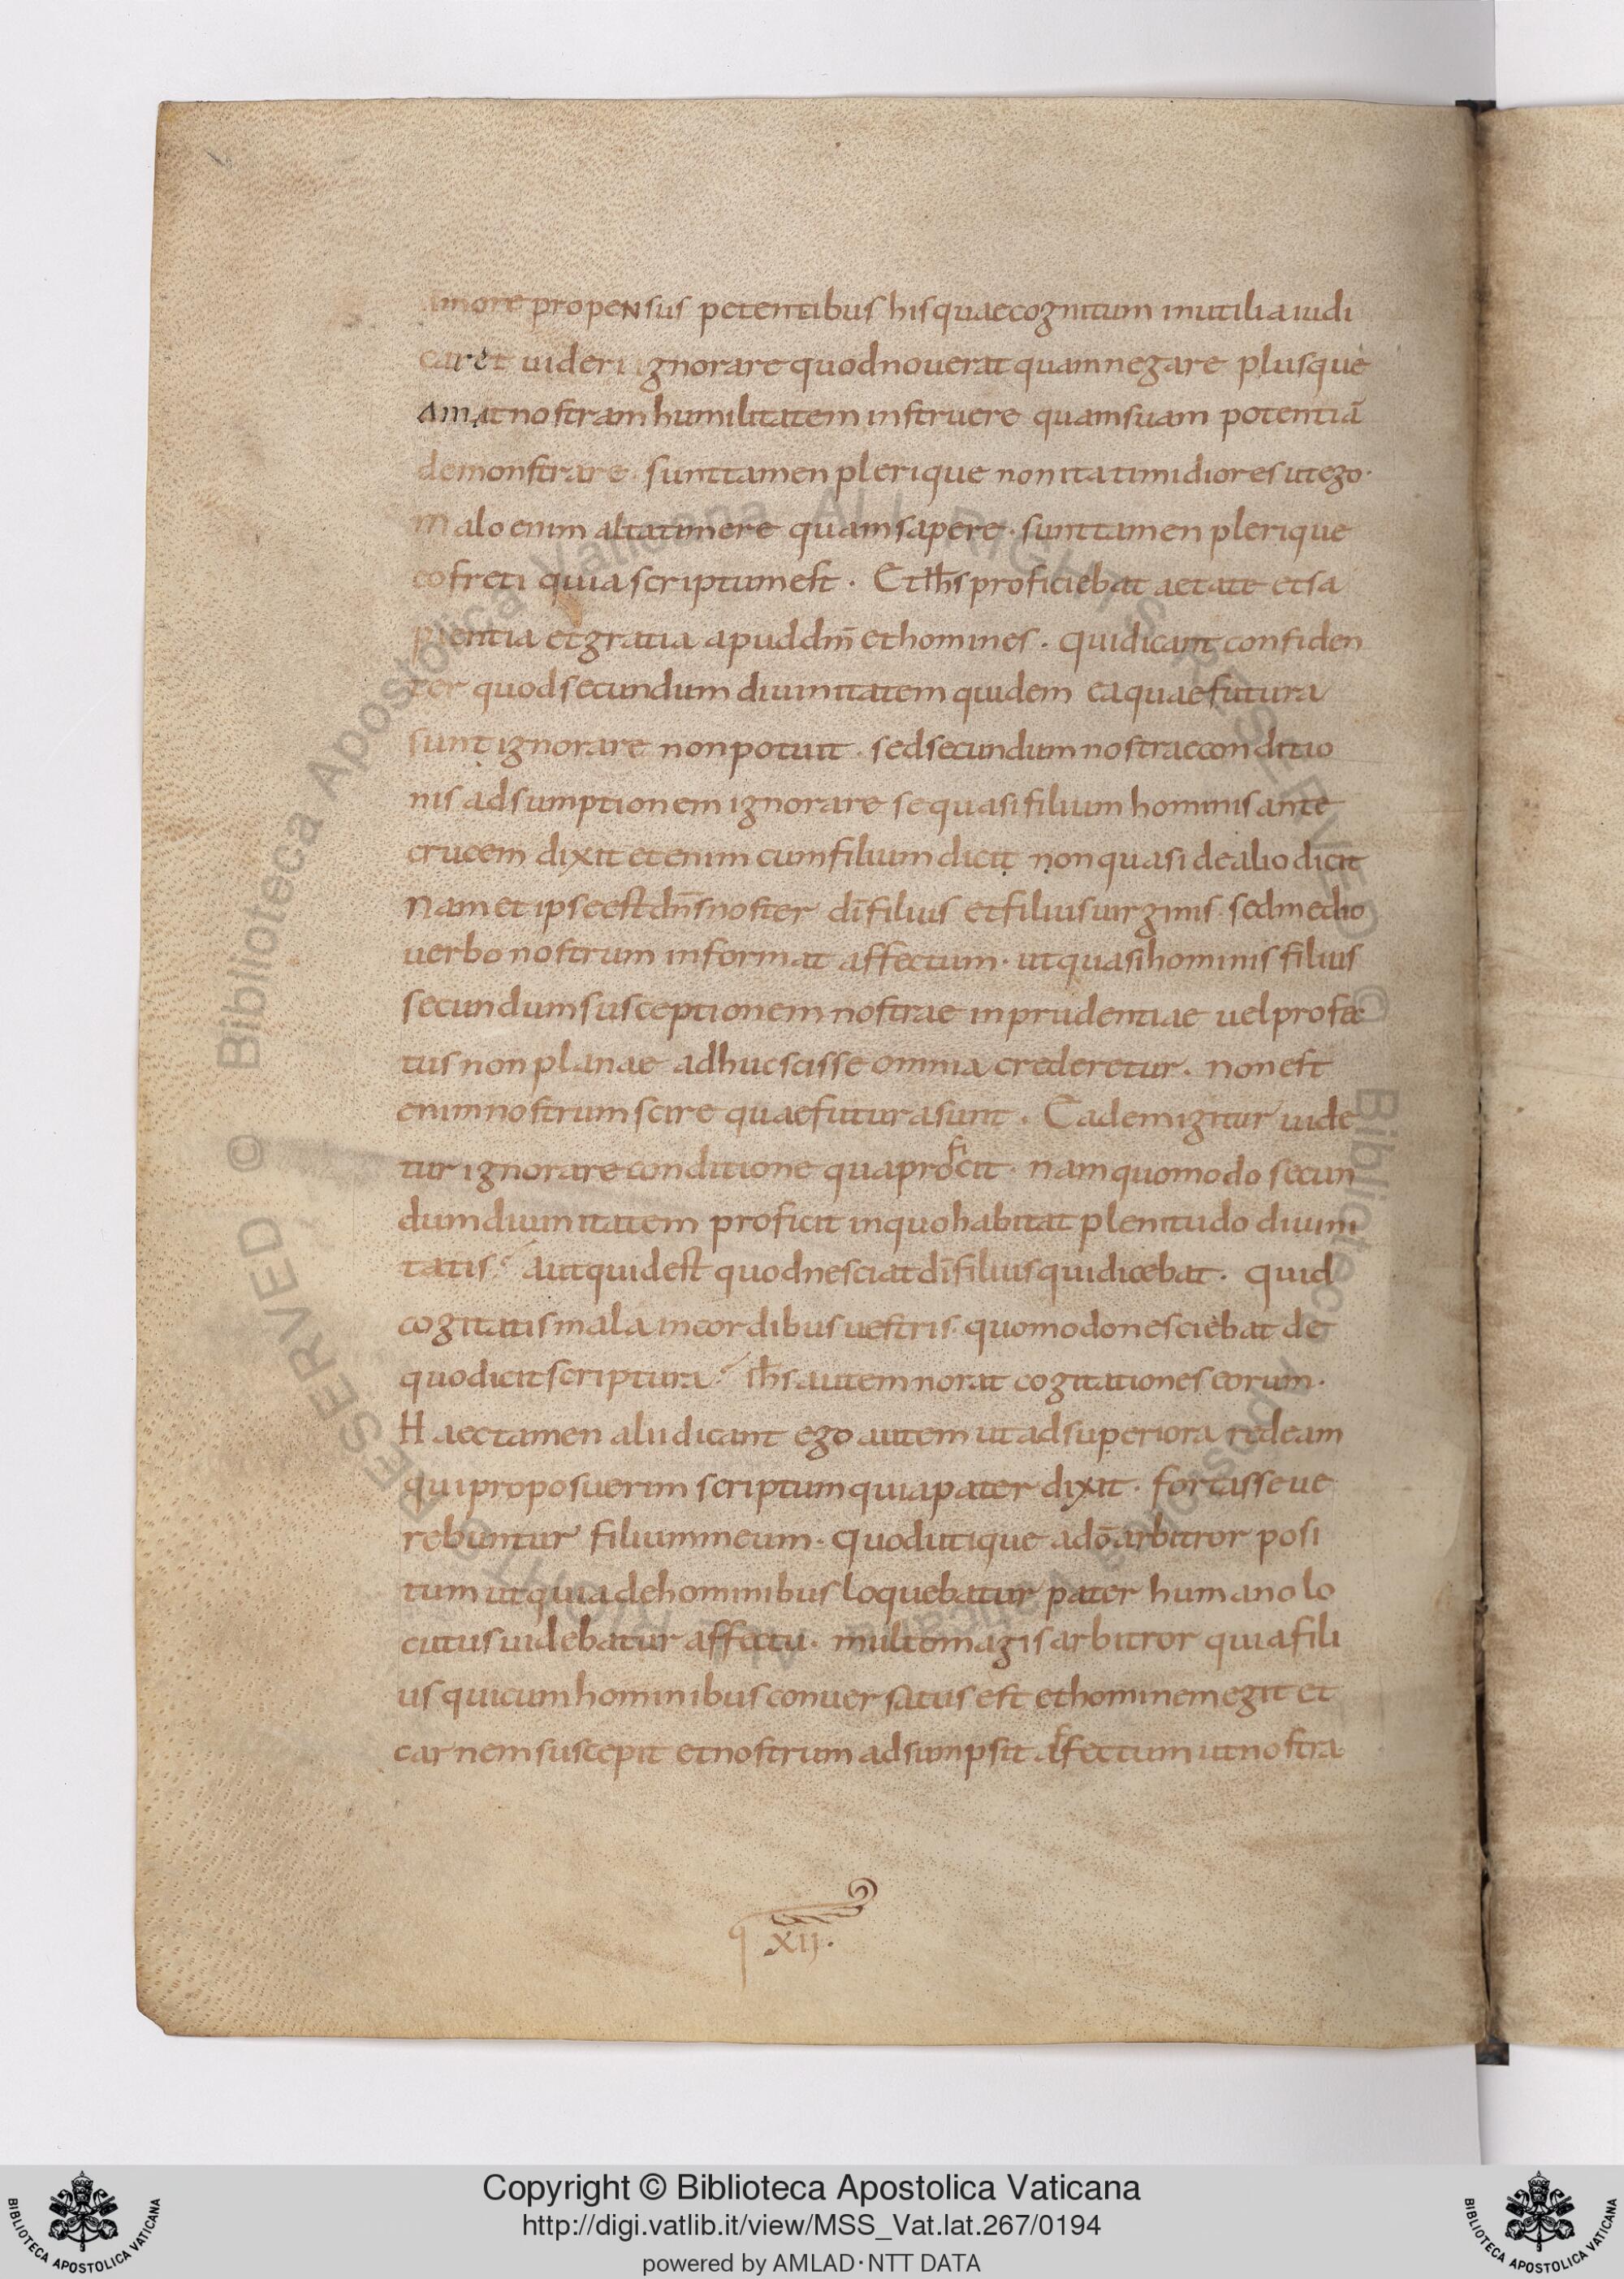 amore propensus petentibus his quae cognitum inutilia iudi
caret uideri ignorare quod nouerat quam negare plusque
amat nostram humilitatem instruere quam suam potentiā
demonstrare · sunt tamen plerique non ita timidiores ut ego ·
malo enim alta timere quam sapere · sunt tamen plerique
eo freti quia scriptum est · Et ihs proficiebat aetate et sa
pientia et gratia apud dm̄ et homines · Qui dicant confiden
ter quod secundum diuinitatem quidem ea quae futura
sunt ignorare non potuit · sed secundum nostrae conditio
nis adsumptionem ignorare se quasi filium hominis ante
crucem dixit et enim cum filium dicit non quasi de alio dicit
Nam et ipse est dn̄s noster dī filius et filius uirginis sed medio
uerbo nostrum informat affectum · ut quasi hominis filius
secundum susceptionem nostrae inprudentiae uel profec
tus non planae adhuc scisse omnia crederetur · non est
enim nostrum scire quae futura sunt · Eadem igitur uide
tur ignorare conditione qua proficit · nam quomodo secun
dum diuinitatem proficit in quo habitat plenitudo diuini
tatis? aut quid est quod nesciat dī filius qui dicebat · Quid
cogitatis mala in cordibus uestris · quomodo nesciebat de
quo dicit scriptura? Ihs autem norat cogitationes eorum ·
Haec tamen alii dicant ego autem ut ad superiora redeam
qui proposuerim scriptum quia pater dixit · fortasse ue
rebuntur filium meum · Quod utique adō arbitror posi
tum ut quia de hominibus loquebatur pater humano lo
cutus uidebatur affectu · multo magis arbitror quia fili
us qui cum hominibus conuersatus est et hominem egit et
carnem suscepit et nostrum adsumpsit affectum ut nostra
q XII ·
© Biblioteca Apostolica Vaticana ALL RIGHTS RESERVED © Biblioteca Apostolica Vaticana ALL RIGHTS RESERVED
BIBLIOTECA APOSTOLICA VATICANA
Copyright © Biblioteca Apostolica Vaticana
http://digi.vatlib.it/view/MSS_Vat.lat.267/0194
powered by AMLAD · NTT DATA
BIBLIOTECA APOSTOLICA VATICANA